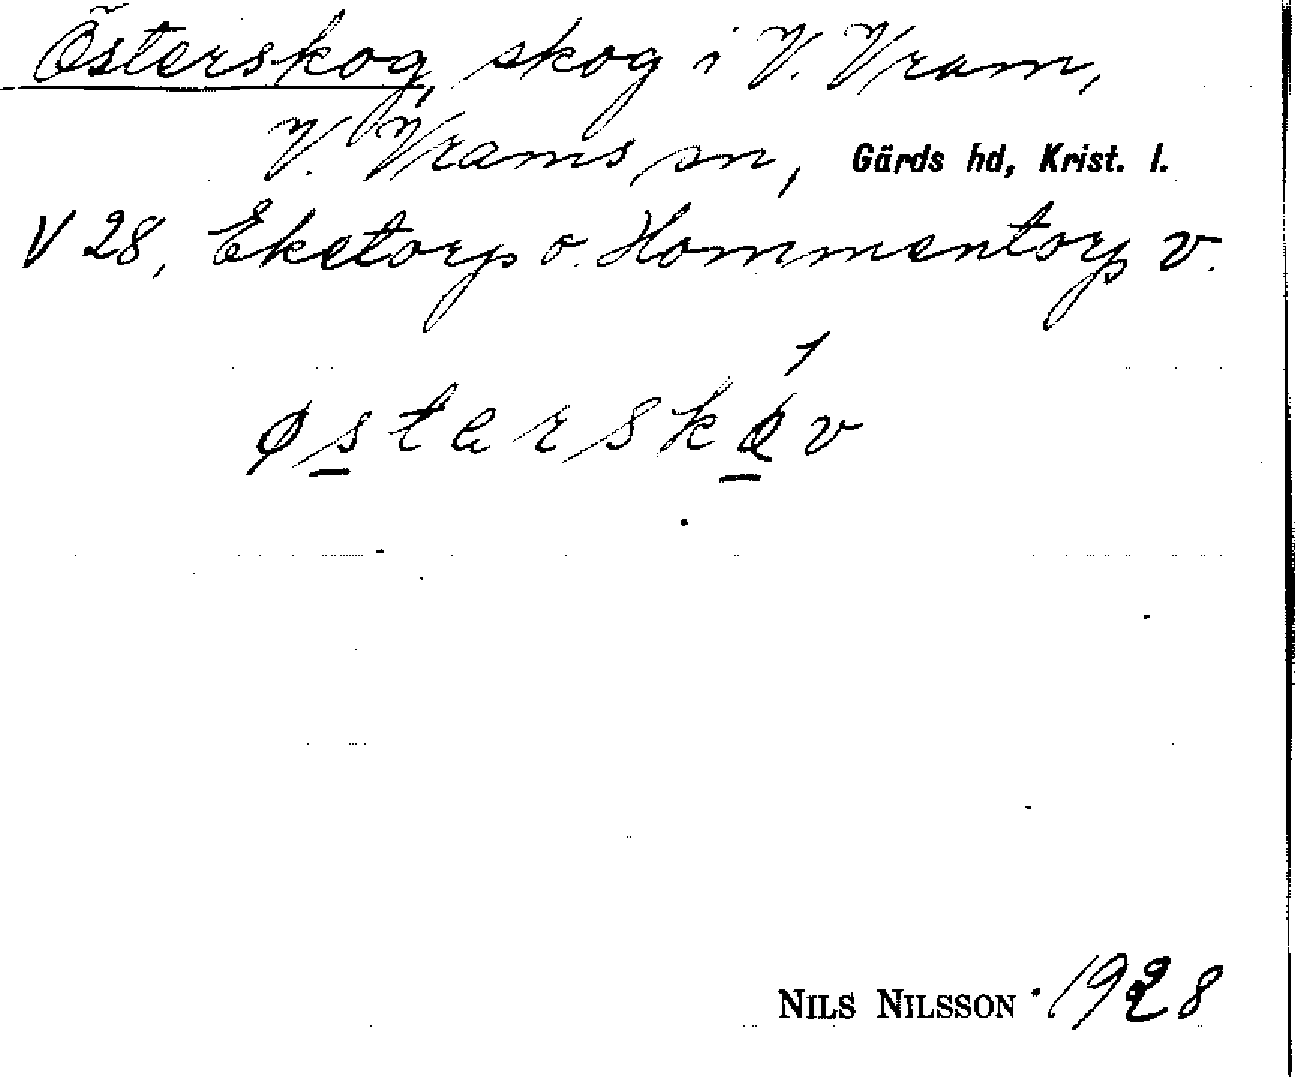 Österskog, skog i V. Vram,
V. Vrams sn, Gärds hd, Krist. l.
V 28, Eketorp o. Hommentorp v.
østərskǿv
NILS NILSSON 1928